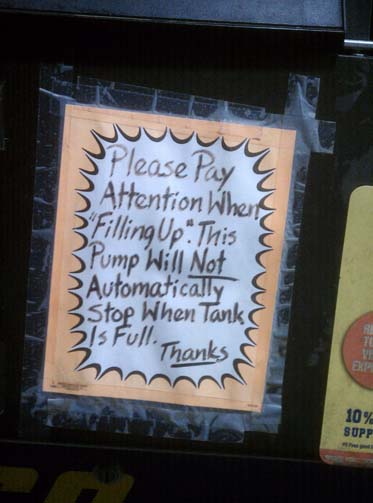 Please Pay
Attention When
"Filling Up". This
Pump Will Not
Automatically
Stop When Tank
Is Full.
Thanks
10%
SUPP